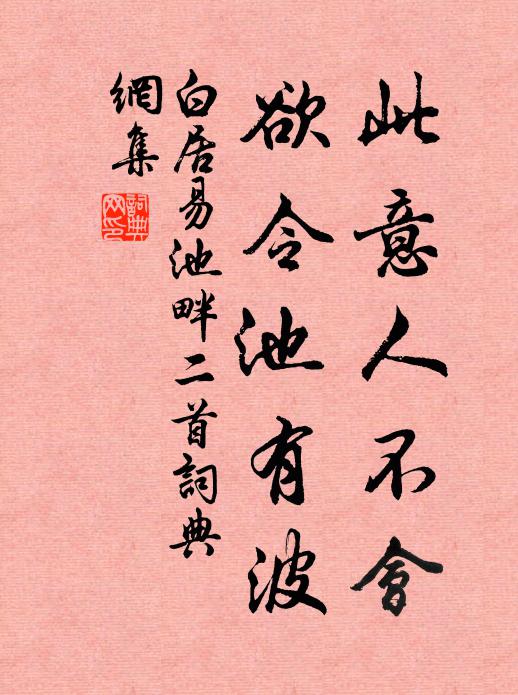 此意人不會
欲令池有波
白居易池畔二首詞典
網集
詞典
网印